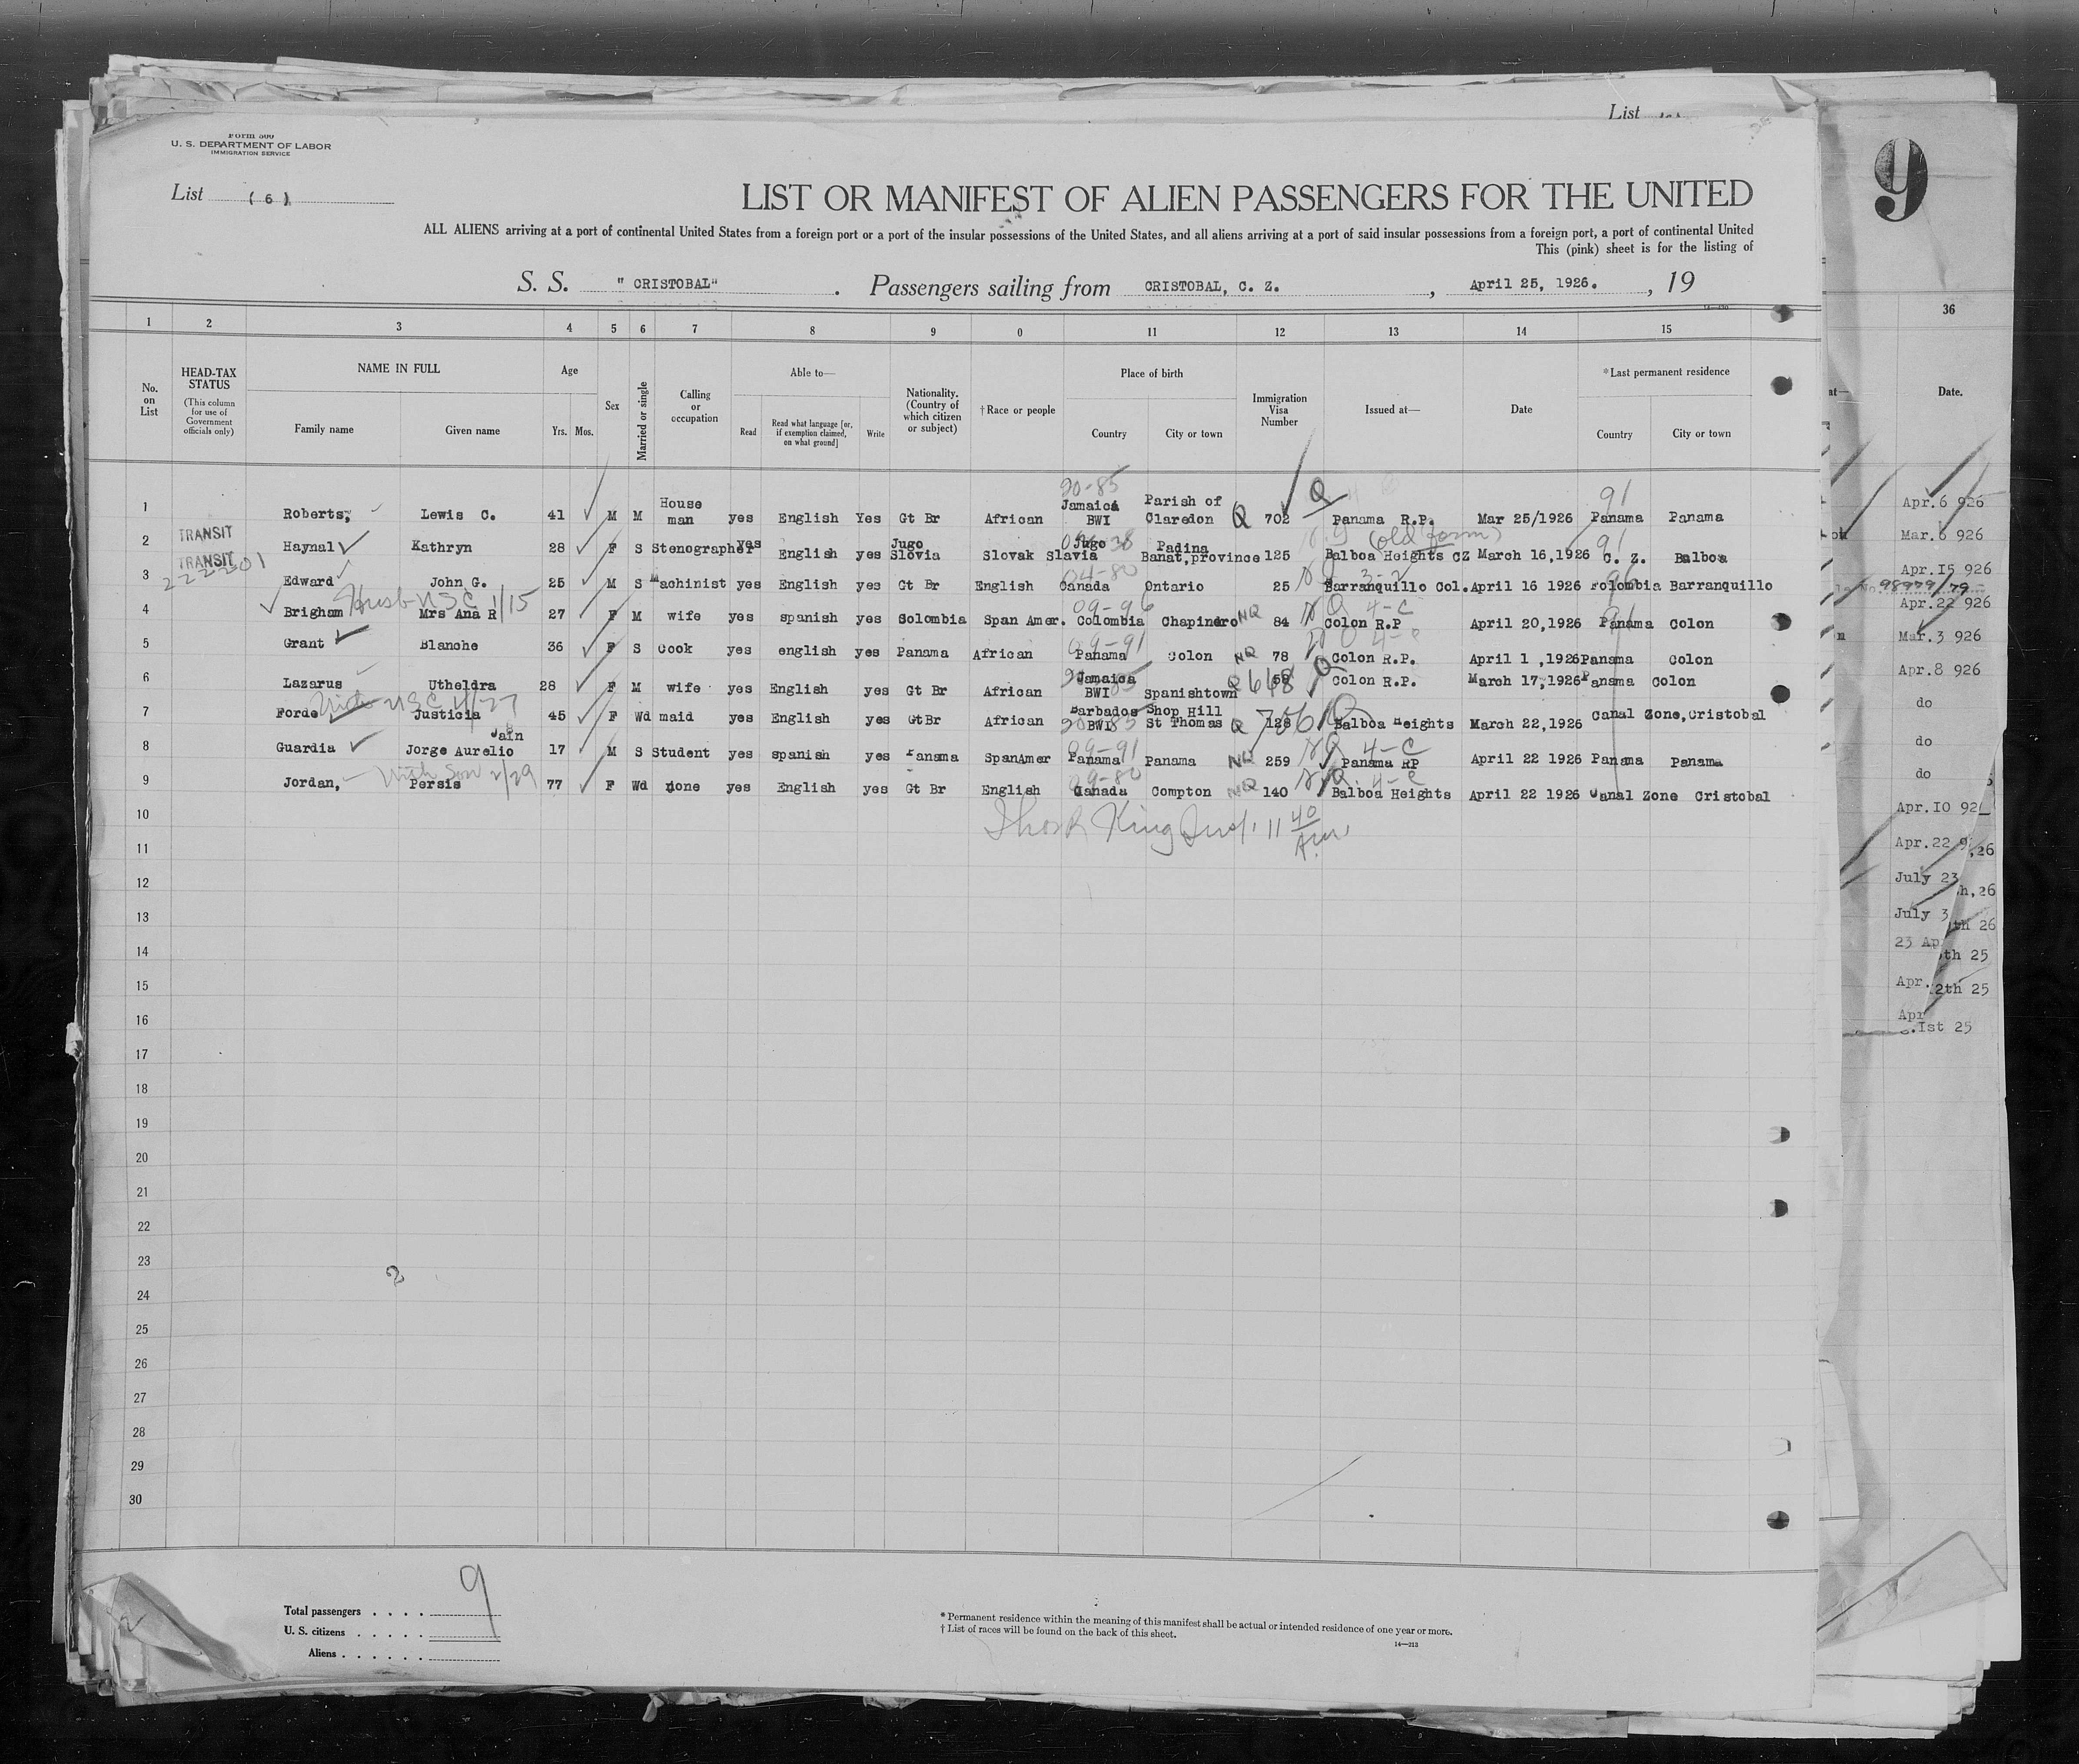 List
Form 500
U. S. DEPARTMENT OF LABOR
IMMIGRATION SERVICE
List ( 6 )
9
LIST OR MANIFEST OF ALIEN PASSENGERS FOR THE UNITED
ALL ALIENS arriving at a port of continental United States from a foreign port or a port of the insular possessions of the United States, and all aliens arriving at a port of said insular possessions from a foreign port, a port of continental United
This (pink) sheet is for the listing of
S. S. " CRISTOBAL" . Passengers sailing from CRISTOBAL, C. Z. , April 25, 1926. , 19
1 2 3 4 5 6 7 8 9 0 11 12 13 14 15 36
No. on List HEAD-TAX STATUS (This column for use of Government officials only) NAME IN FULL Family name Given name Age Yrs. Mos. Sex Married or single Calling or occupation Able to— Read Read what language [or, if exemption claimed, on what ground] Write Nationality. (Country of which citizen or subject) † Race or people Place of birth Country City or town Immigration Visa Number Issued at— Date * Last permanent residence Country City or town Date.
20-85 Q 91
1 Roberts, Lewis C. 41 M M House man yes English Yes Gt Br African Jamaica BWI Parish of Claredon Q 702 Panama R.P. Mar 25/1926 Panama Panama Apr.6 926
(old form) 91
2 TRANSIT Haynal Kathryn 28 F S Stenographer yes English yes Jugo Slovia Slovak Jugo Slavia Padina Banat,province 125 Balboa Heights CZ March 16,1926 C. Z. Balboa Mar.6 926
TRANSIT
222201
04-80 3-2
3 Edward John G. 25 M S Machinist yes English yes Gt Br English Canada Ontario 25 Barranquillo Col. April 16 1926 Folombia Barranquillo Apr.15 926
98979/79
Husb USC 1/15 09-96 NQ 4-C
4 Brigham Mrs Ana R 27 F M wife yes spanish yes Solombia Span Amer. Colombia Chapindro NQ 84 Colon R.P April 20,1926 Panama Colon Apr.22 926
09-91
5 Grant Blanche 36 F S Cook yes english yes Panama African Panama Colon NQ 78 Colon R.P. April 1 ,1926 Panama Colon Mar.3 926
6 Lazarus Utheldra 28 F M wife yes English yes Gt Br African Jamaica BWI Spanishtown Q 648 Colon R.P. March 17,1926 Panama Colon Apr.8 926
USC 4/27
7 Forde Justicia 45 F Wd maid yes English yes GtBr African Barbados BWI Shop Hill St Thomas Q 128 756 Q Balboa Heights March 22,1926 Canal Zone,Cristobal do
09-91 NQ 4-C
8 Guardia Jorge Aurelio Jain 17 M S Student yes spanish yes Panama SpanAmer Panama Panama NQ 259 Panama RP April 22 1926 Panama Panama do
With Son 2/29 09-80 NQ. 4-C
9 Jordan, Persis 77 F Wd none yes English yes Gt Br English Canada Compton NQ 140 Balboa Heights April 22 1926 Canal Zone Cristobal do
10 Apr.10 92
King Insp. 11 40 Am
11 Apr.22 9 ,26
12 July 23 h,26
13 July 3 th 26
14 23 Ap th 25
15 Apr. 2th 25
16 Apr .Ist 25
17
18
19
20
21
22
23
2
24
25
26
27
28
29
30
Total passengers . . . . 9
U. S. citizens . . . . .
Aliens . . . . . .
* Permanent residence within the meaning of this manifest shall be actual or intended residence of one year or more.
† List of races will be found on the back of this sheet.
14—213